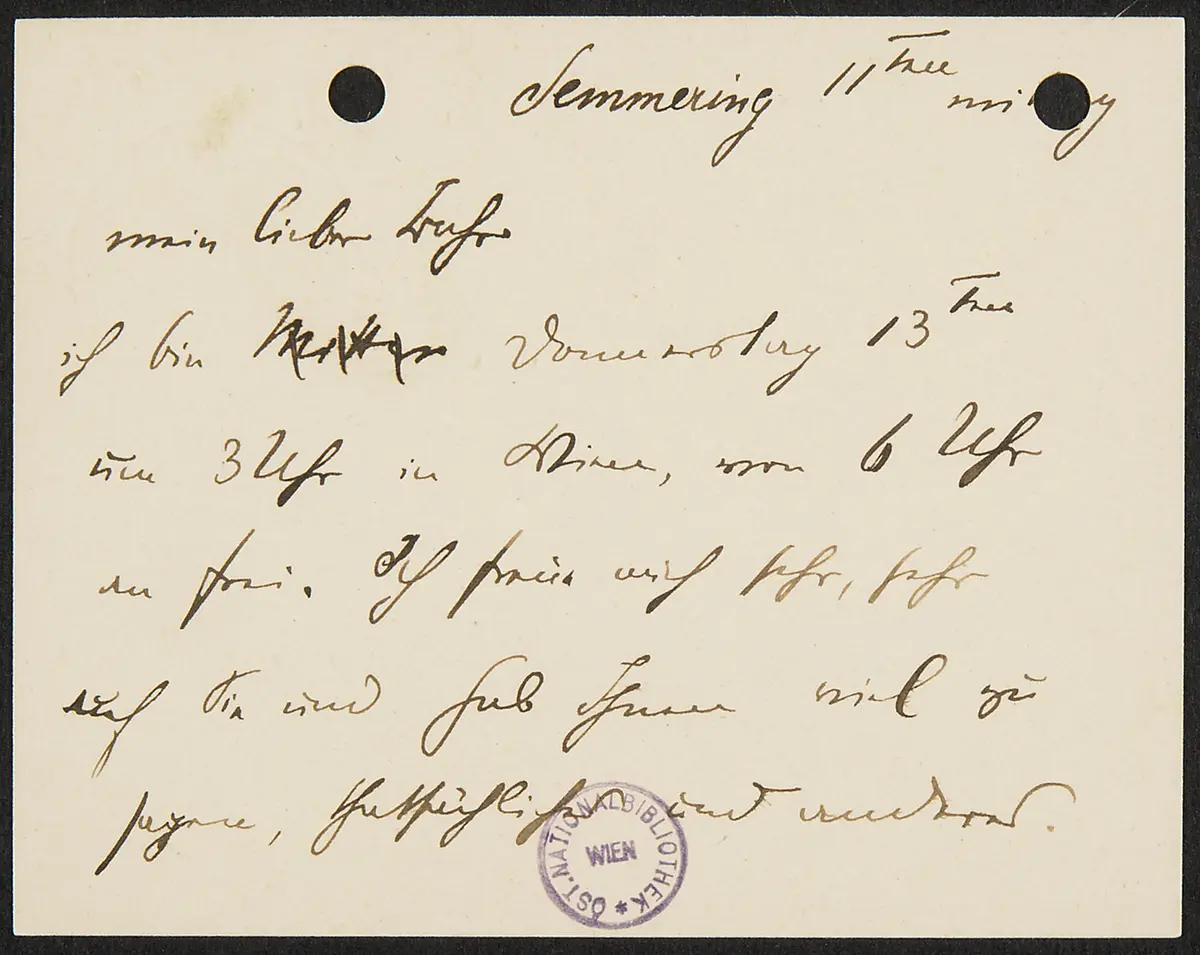 Semmering 11ten
mein lieber Bahr
ich bin Donnerstag 13ten
um 3 Uhr in Wien, von 6 Uhr
an frei. Ich freue mich sehr, sehr
auf Sie und hab Ihnen viel zu
sagen, thatsächliches und anderes.
ÖST. NATIONALBIBLIOTHEK *
WIEN